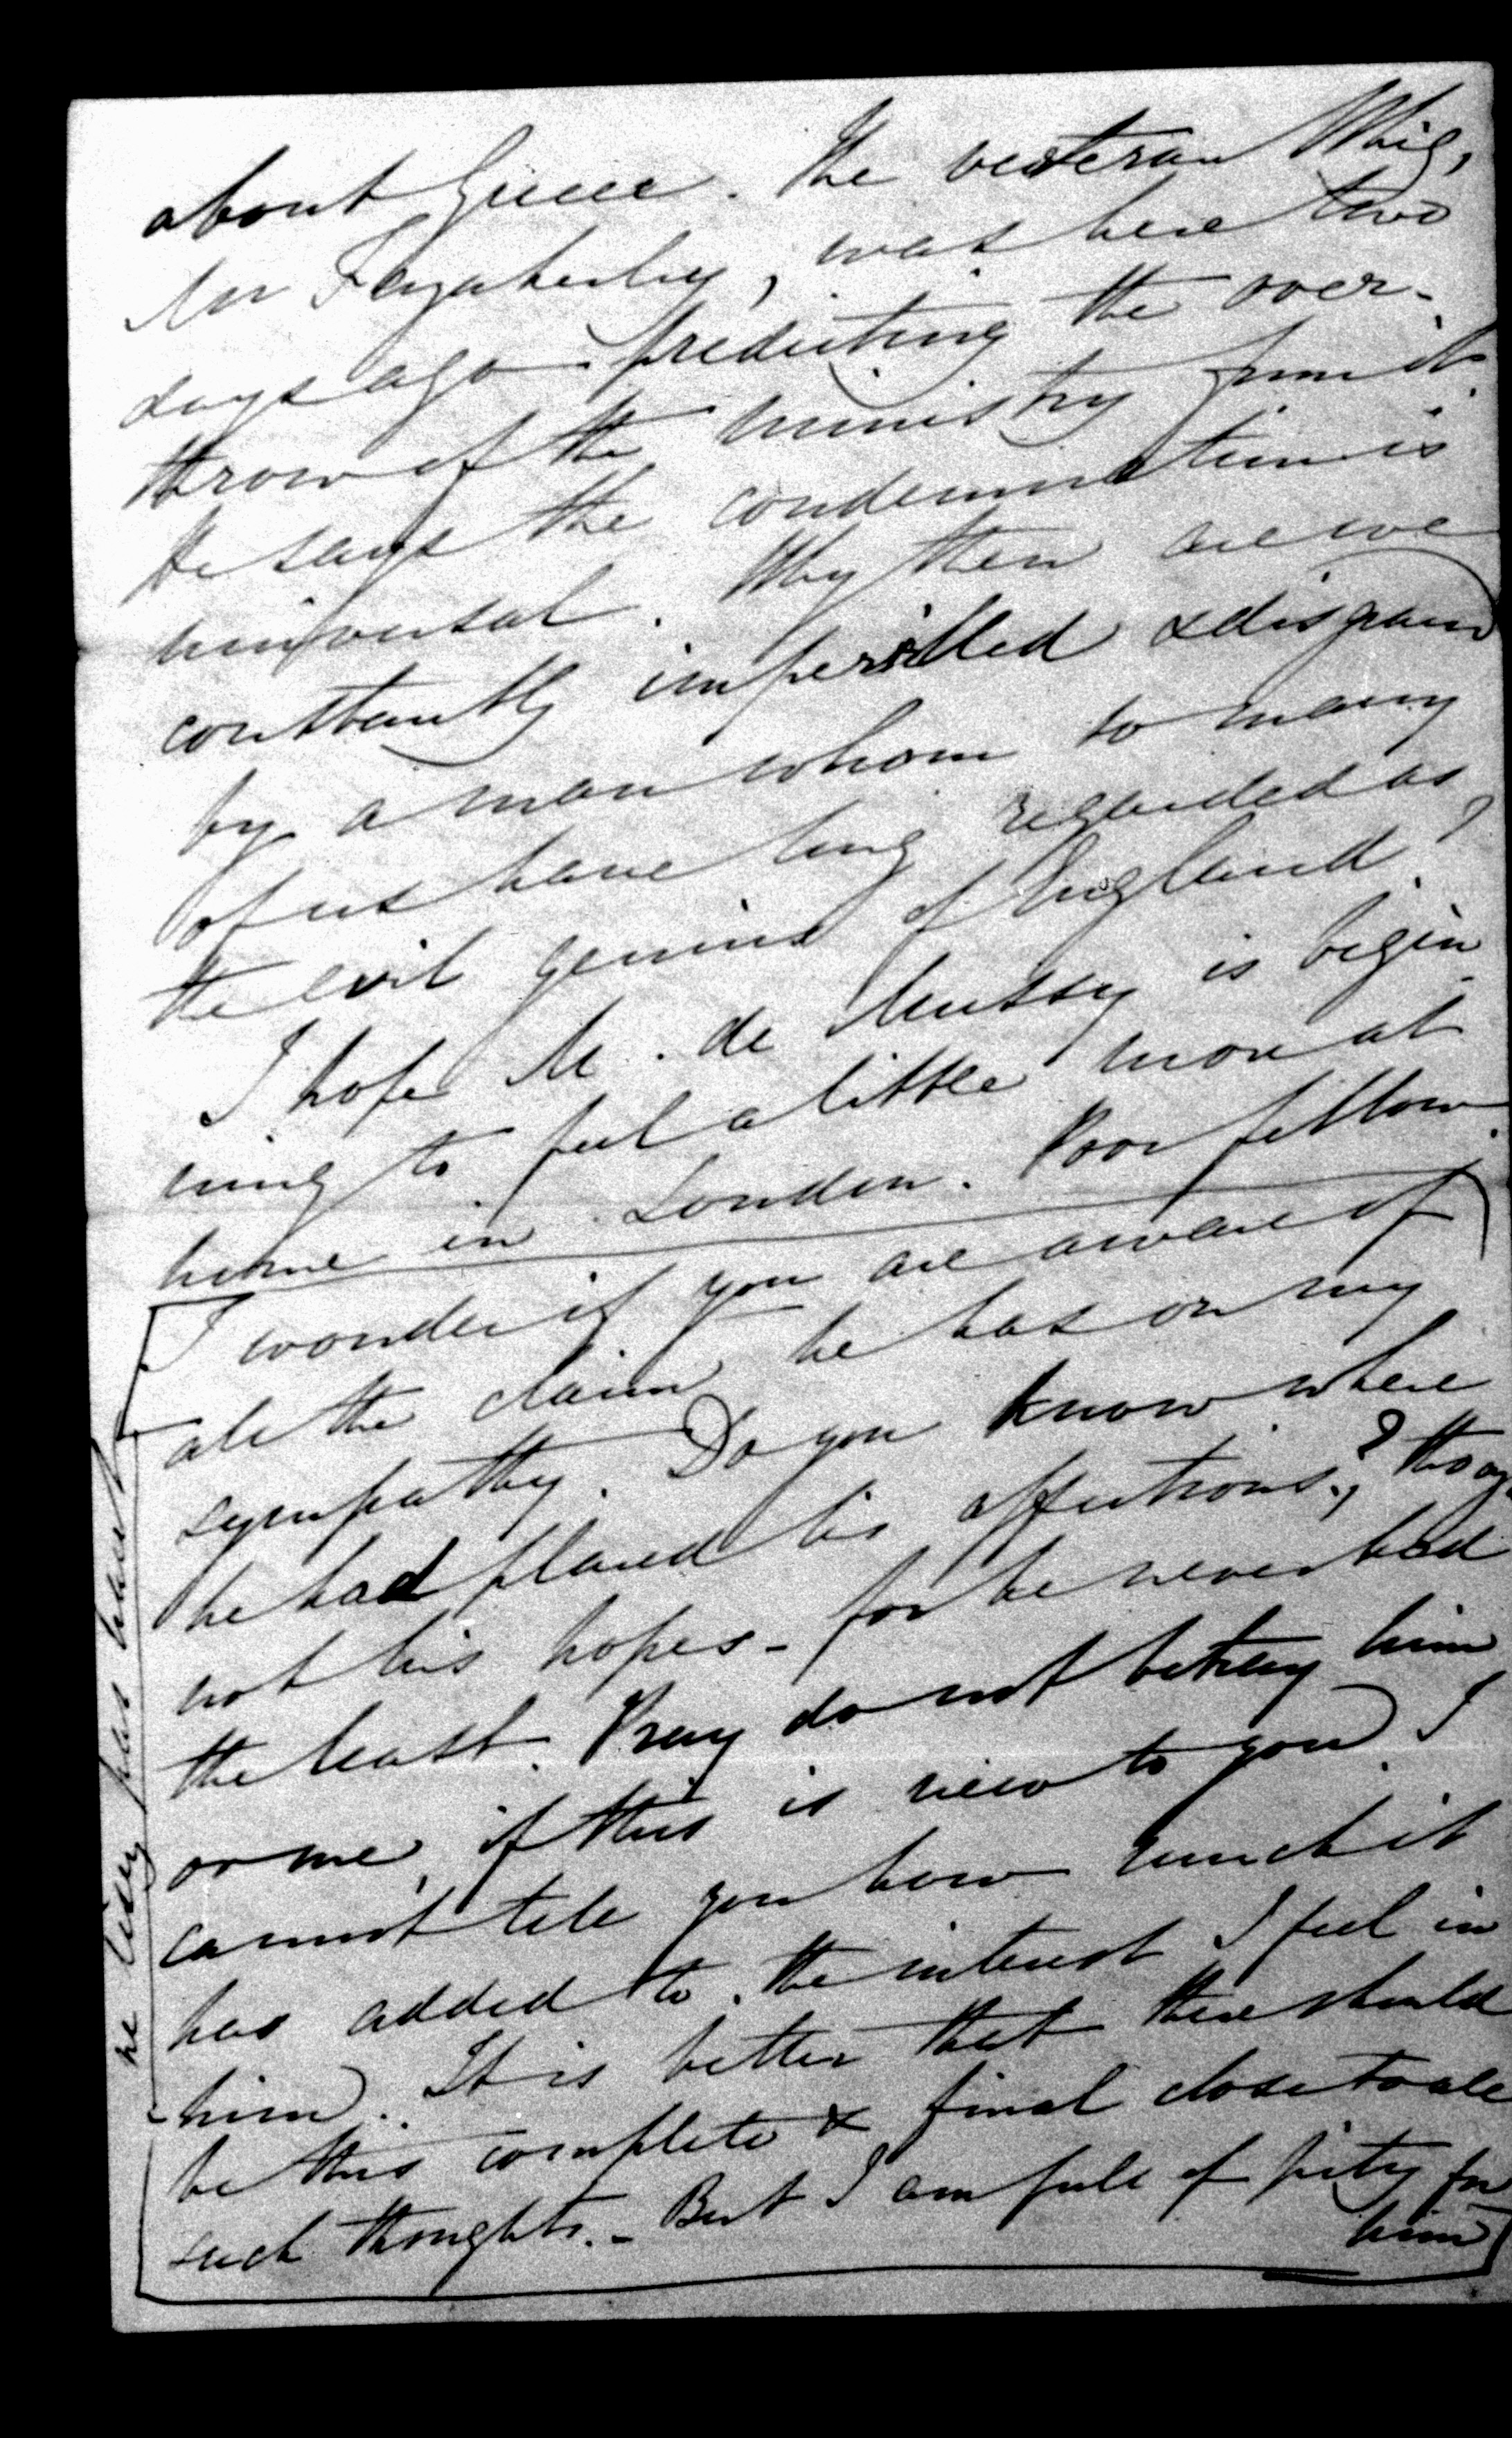 about Greece. The veteran Whig,
Mr Fazakerley, was here two
days ago predicting the over-
throw of the ministry from it.
He says the condemnation is
universal. Why then are we
constantly imperilled & disgraced
by a man whom so many
of us have long regarded as
the evil genius of England?
I hope M. de Mussy is begin
ning to feel a little more at
home in London. Poor fellow.
I wonder if you are aware of
all the claim he has on my
sympathy. Do you know where
he had placed his affections,? tho'
not his hopes - for he never had
the least. Pray do not betray him
or me, if this is new to you. I
cannot tell you how much it
has added to the interest I feel in
him. It is better that there should
be this complete & final close to all
such thoughts. - But I am full of pity for
him
he has